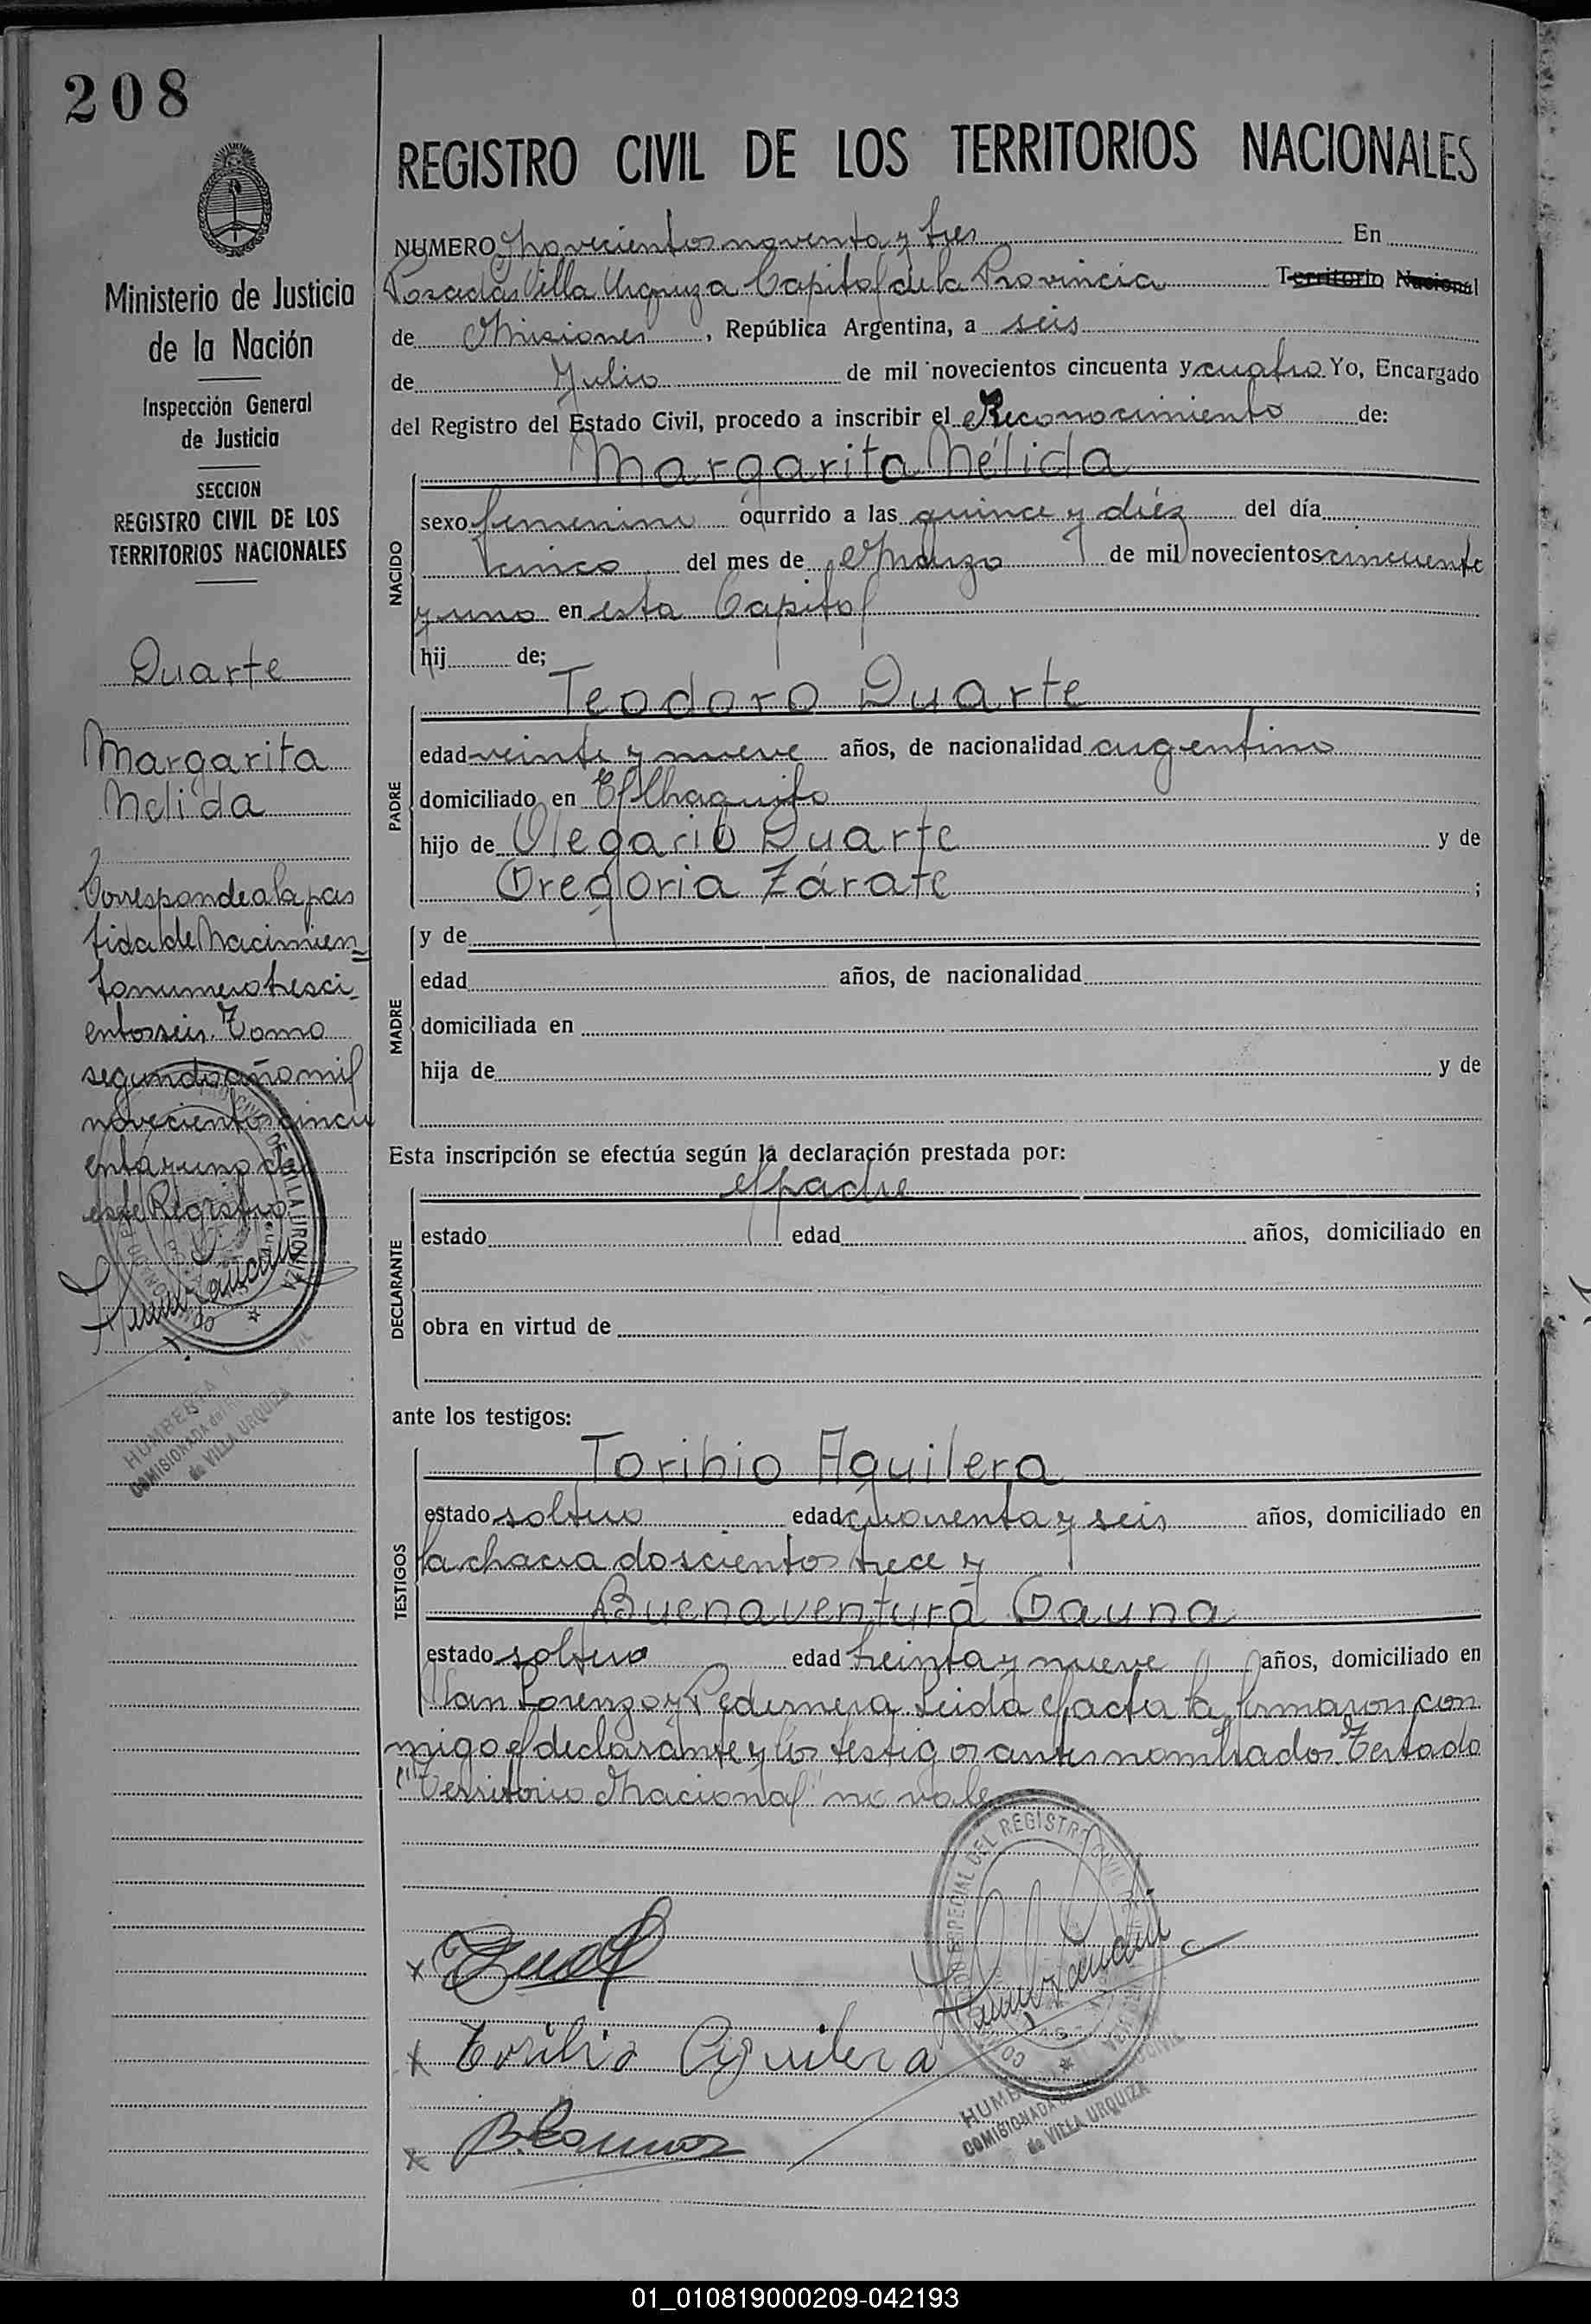 208
Ministerio de Justicia
de la Nación
Inspección General
de Justicia
SECCION
REGISTRO CIVIL DE LOS
TERRITORIOS NACIONALES
Duarte
Margarita
Nelida
Corresponde a la par
tida de Nacimien=
to numero tresci-
entos seis. Tomo
segundo año mil
novecientos cincu
enta y uno de
este Registro
HUMBERTA
COMISIONADA del
de VILLA URQUIZA
REGISTRO CIVIL DE LOS TERRITORIOS NACIONALES
NUMERO Novecientos noventa y tres En
Posadas Villa Urquiza Capital de la Provincia Territorio Nacional
de Misiones , República Argentina, a seis
de Julio de mil novecientos cincuenta y cuatro Yo, Encargado
del Registro del Estado Civil, procedo a inscribir el Reconocimiento de:
Margarita Nélida
NACIDO
sexo femenino ocurrido a las quince y diéz del día
cinco del mes de Marzo de mil novecientos cincuenta
y uno en esta Capital
hij de;
Teodoro Duarte
PADRE
edad veinte y nueve años, de nacionalidad argentino
domiciliado en El Chaquito
hijo de Olegario Duarte y de
Gregoria Zárate ;
MADRE
y de
edad años, de nacionalidad
domiciliada en
hija de y de
Esta inscripción se efectúa según la declaración prestada por:
el padre
DECLARANTE
estado edad años, domiciliado en
obra en virtud de
ante los testigos:
Toribio Aguilera
TESTIGOS
estado soltero edad cuarenta y seis años, domiciliado en
la chacra doscientos trece y
Buenaventura Gauna
estado soltero edad treinta y nueve años, domiciliado en
San Lorenzo y Pedernera Leida el acta la firmaron con
migo el declarante y los testigos antes nombrados. Testado
"Territorio Nacional" no vale
DEL REGISTRO CIVIL DE
Toribio Aguilera
B. Gauna
HUMBERTA
COMISIONADA
de VILLA URQUIZA
01_010819000209-042193